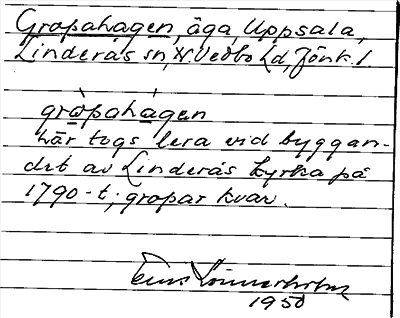 Gropahagen, äga, Uppsala,
Linderås sn, N. Vedbo hd, Jönk. l.
gròpahàgen
här togs lera vid byggan-
det av Linderås kyrka på
1790-t; gropar kvar.
1950